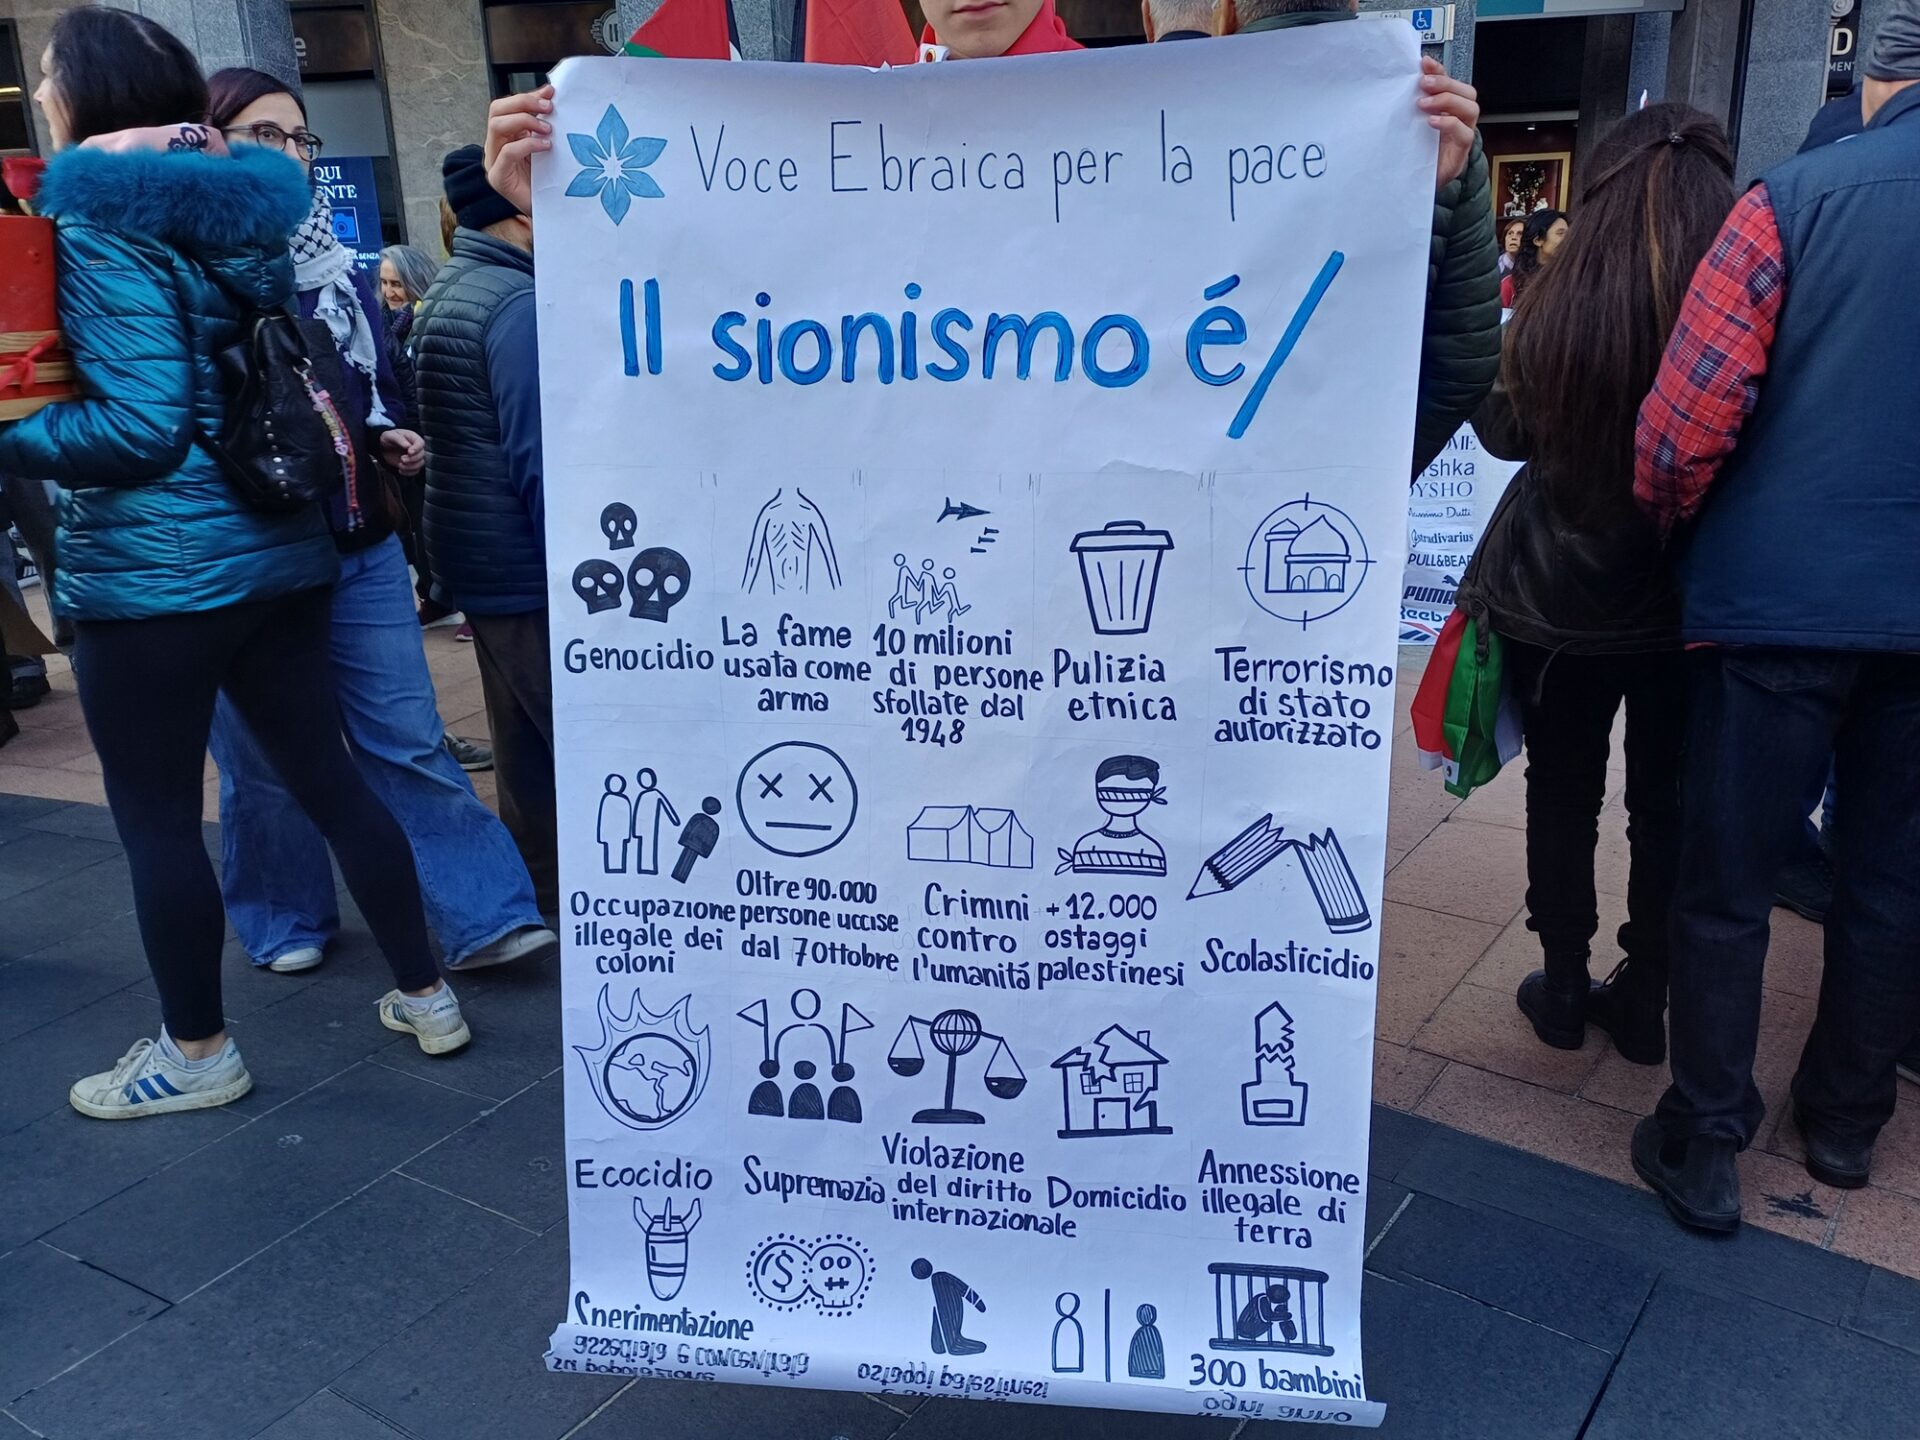 Voce Ebraica per la pace
Il sionismo é/
Genocidio
La fame
usata come
arma
10 milioni
di persone
sfollate dal
1948
Pulizia
etnica
Terrorismo
di stato
autorizzato
Occupazione
illegale dei
coloni
Oltre 90.000
persone uccise
dal 7 Ottobre
Crimini
contro
l'umanitá
+12.000
ostaggi
palestinesi
Scolasticidio
Ecocidio
Supremazia
Violazione
del diritto
internazionale
Domicidio
Annessione
illegale di
terra
Sperimentazione
su popolazione
assediata e concentrata
$
ostaggi palestinesi
300 bambini
ogni anno
QUI
shka
OYSHO
Massimo Dutti
Stradivarius
PULL&BEAR
PUMA
Reebo